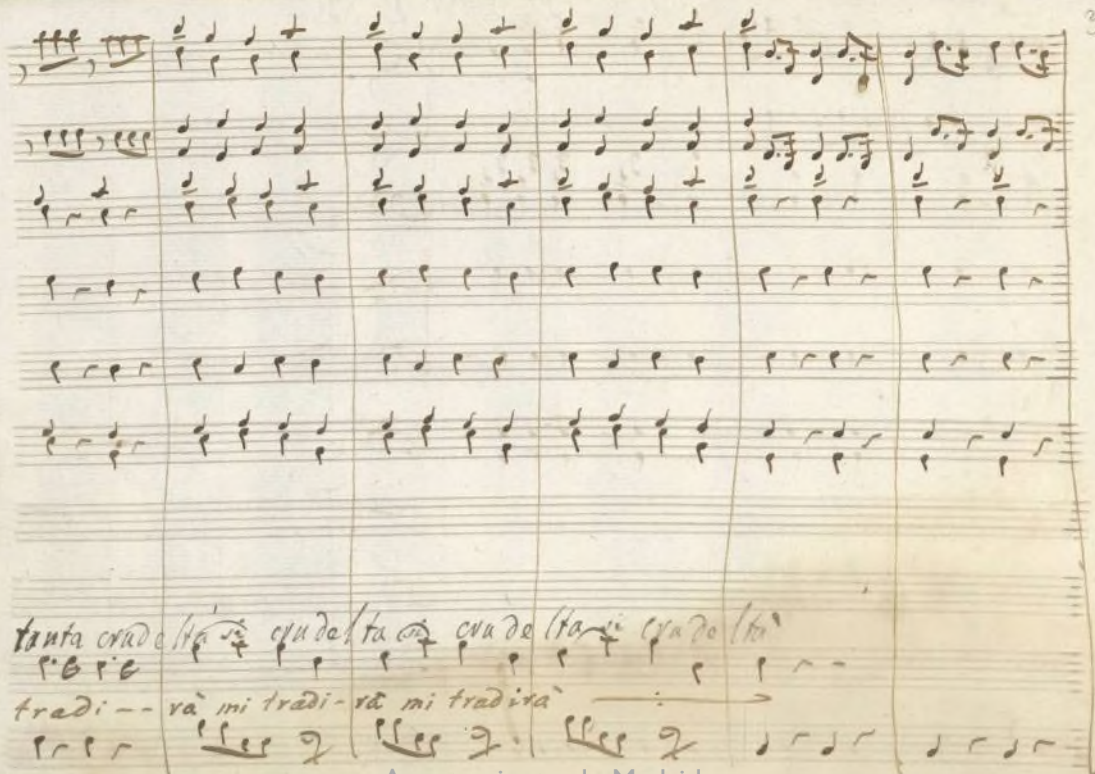 tanta crudeltà si crudelta si crudelta si crudeltà
tradi -- rà mi tradi - rà mi tradirà